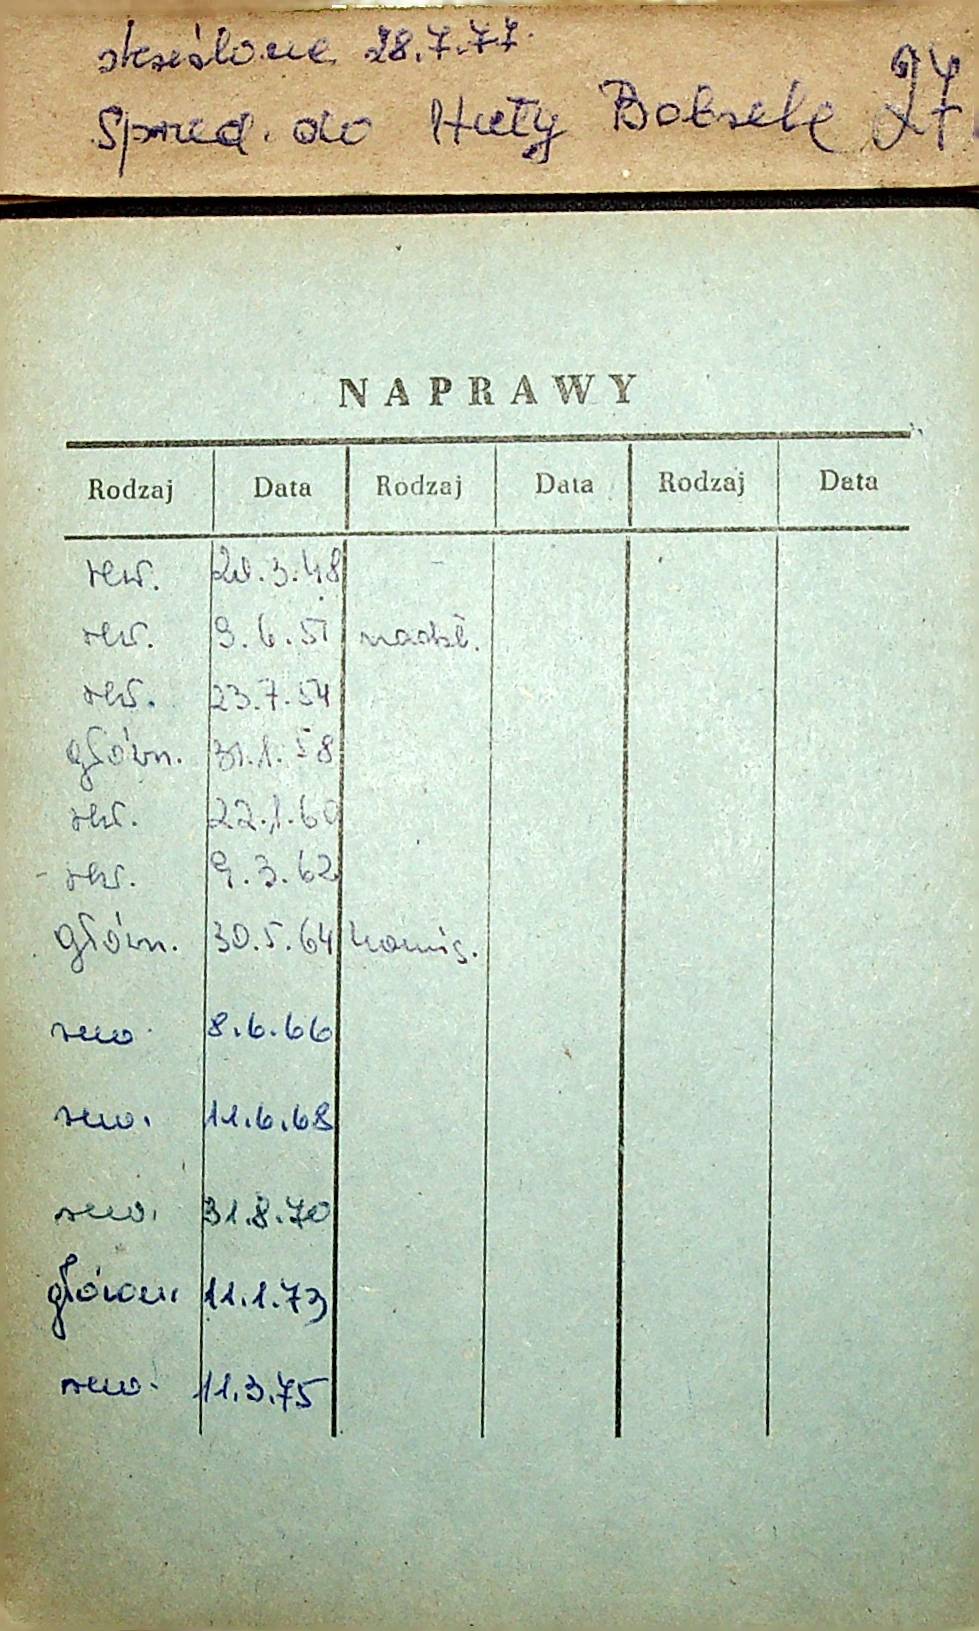 skreślono 28.7.77.
Sprzed. do Huty Bobrek 27.
NAPRAWY
Rodzaj Data Rodzaj Data Rodzaj Data
rew. .3.48
rew. 9.6.51 nadzw.
rew. 23.7.54
główn. 31.1.58
rew. 22.1.60
rew. 9.3.62
główn. 30.5.64 komis.
rew. 8.6.66
rew. 11.6.68
rew. 31.8.70
główn. 11.1.73
rew. 11.3.75